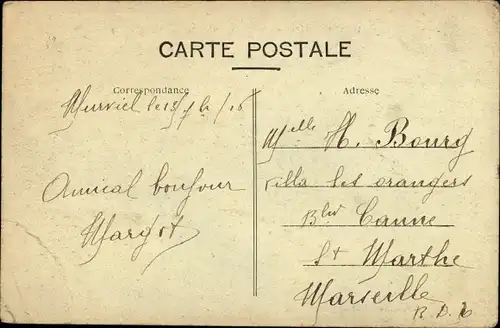 CARTE POSTALE
Correspondance
Adresse
Murviel le 15
Amical bonjour
Margot
Melle H. Bourg
villa les orangers
Blvd
St Marthe
Marseille
B. D. R